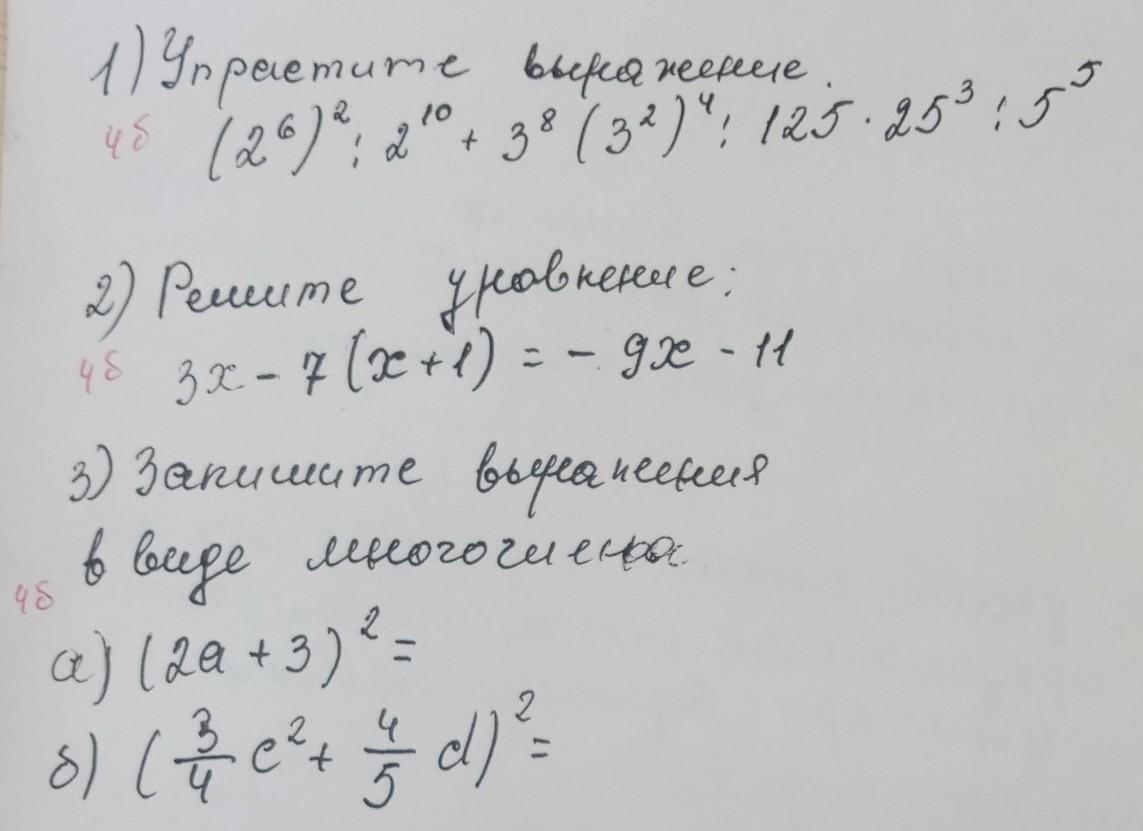 1) Упростите выражение.
4б (2⁶)² : 2¹⁰ + 3⁸ (3²)⁴ : 125 · 25³ : 5⁵
2) Решите уравнение:
4б 3x - 7(x+1) = - 9x - 11
3) Запишите выражения
в виде многочлена
4б
а) (2a + 3)² =
б) (3/4 c² + 4/5 d)² =